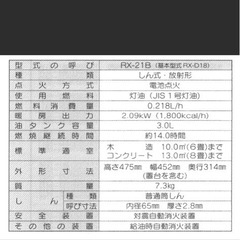 型式の呼び RX-21B（基本型式 RX-D18）
種類 しん式・放射形
点火方式 電池点火
使用燃料 灯油（JIS 1号灯油）
燃料消費量 0.218L/h
暖房出力 2.09kW（1,800kcal/h）
油タンク容量 3.0L
燃焼継続時間 約14.0時間
標準適室 木造 10.0㎡（6畳）まで
コンクリート 13.0㎡（8畳）まで
外形寸法 高さ475mm 幅452mm 奥行314mm
（置台を含む）
質量 7.3kg
しん 種類 普通筒しん
呼び寸法 内径65mm 厚さ2.8mm
安全装置 対震自動消火装置
その他の装置 給油時自動消火装置